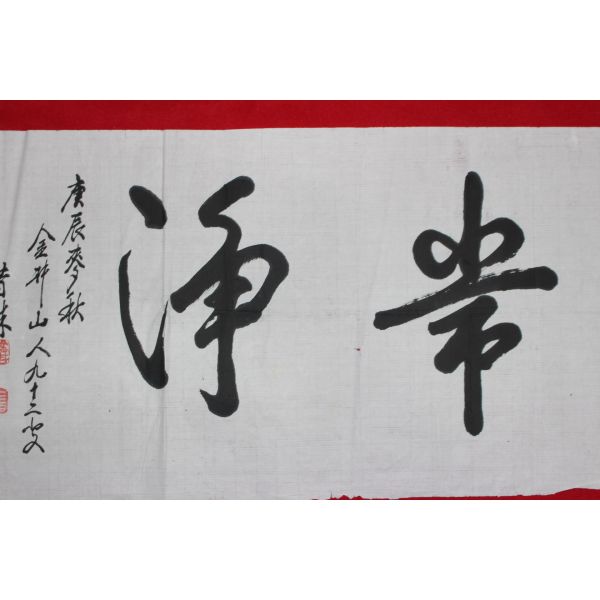 常淨
庚辰麥秋
金井山人九十二叟
昔珠